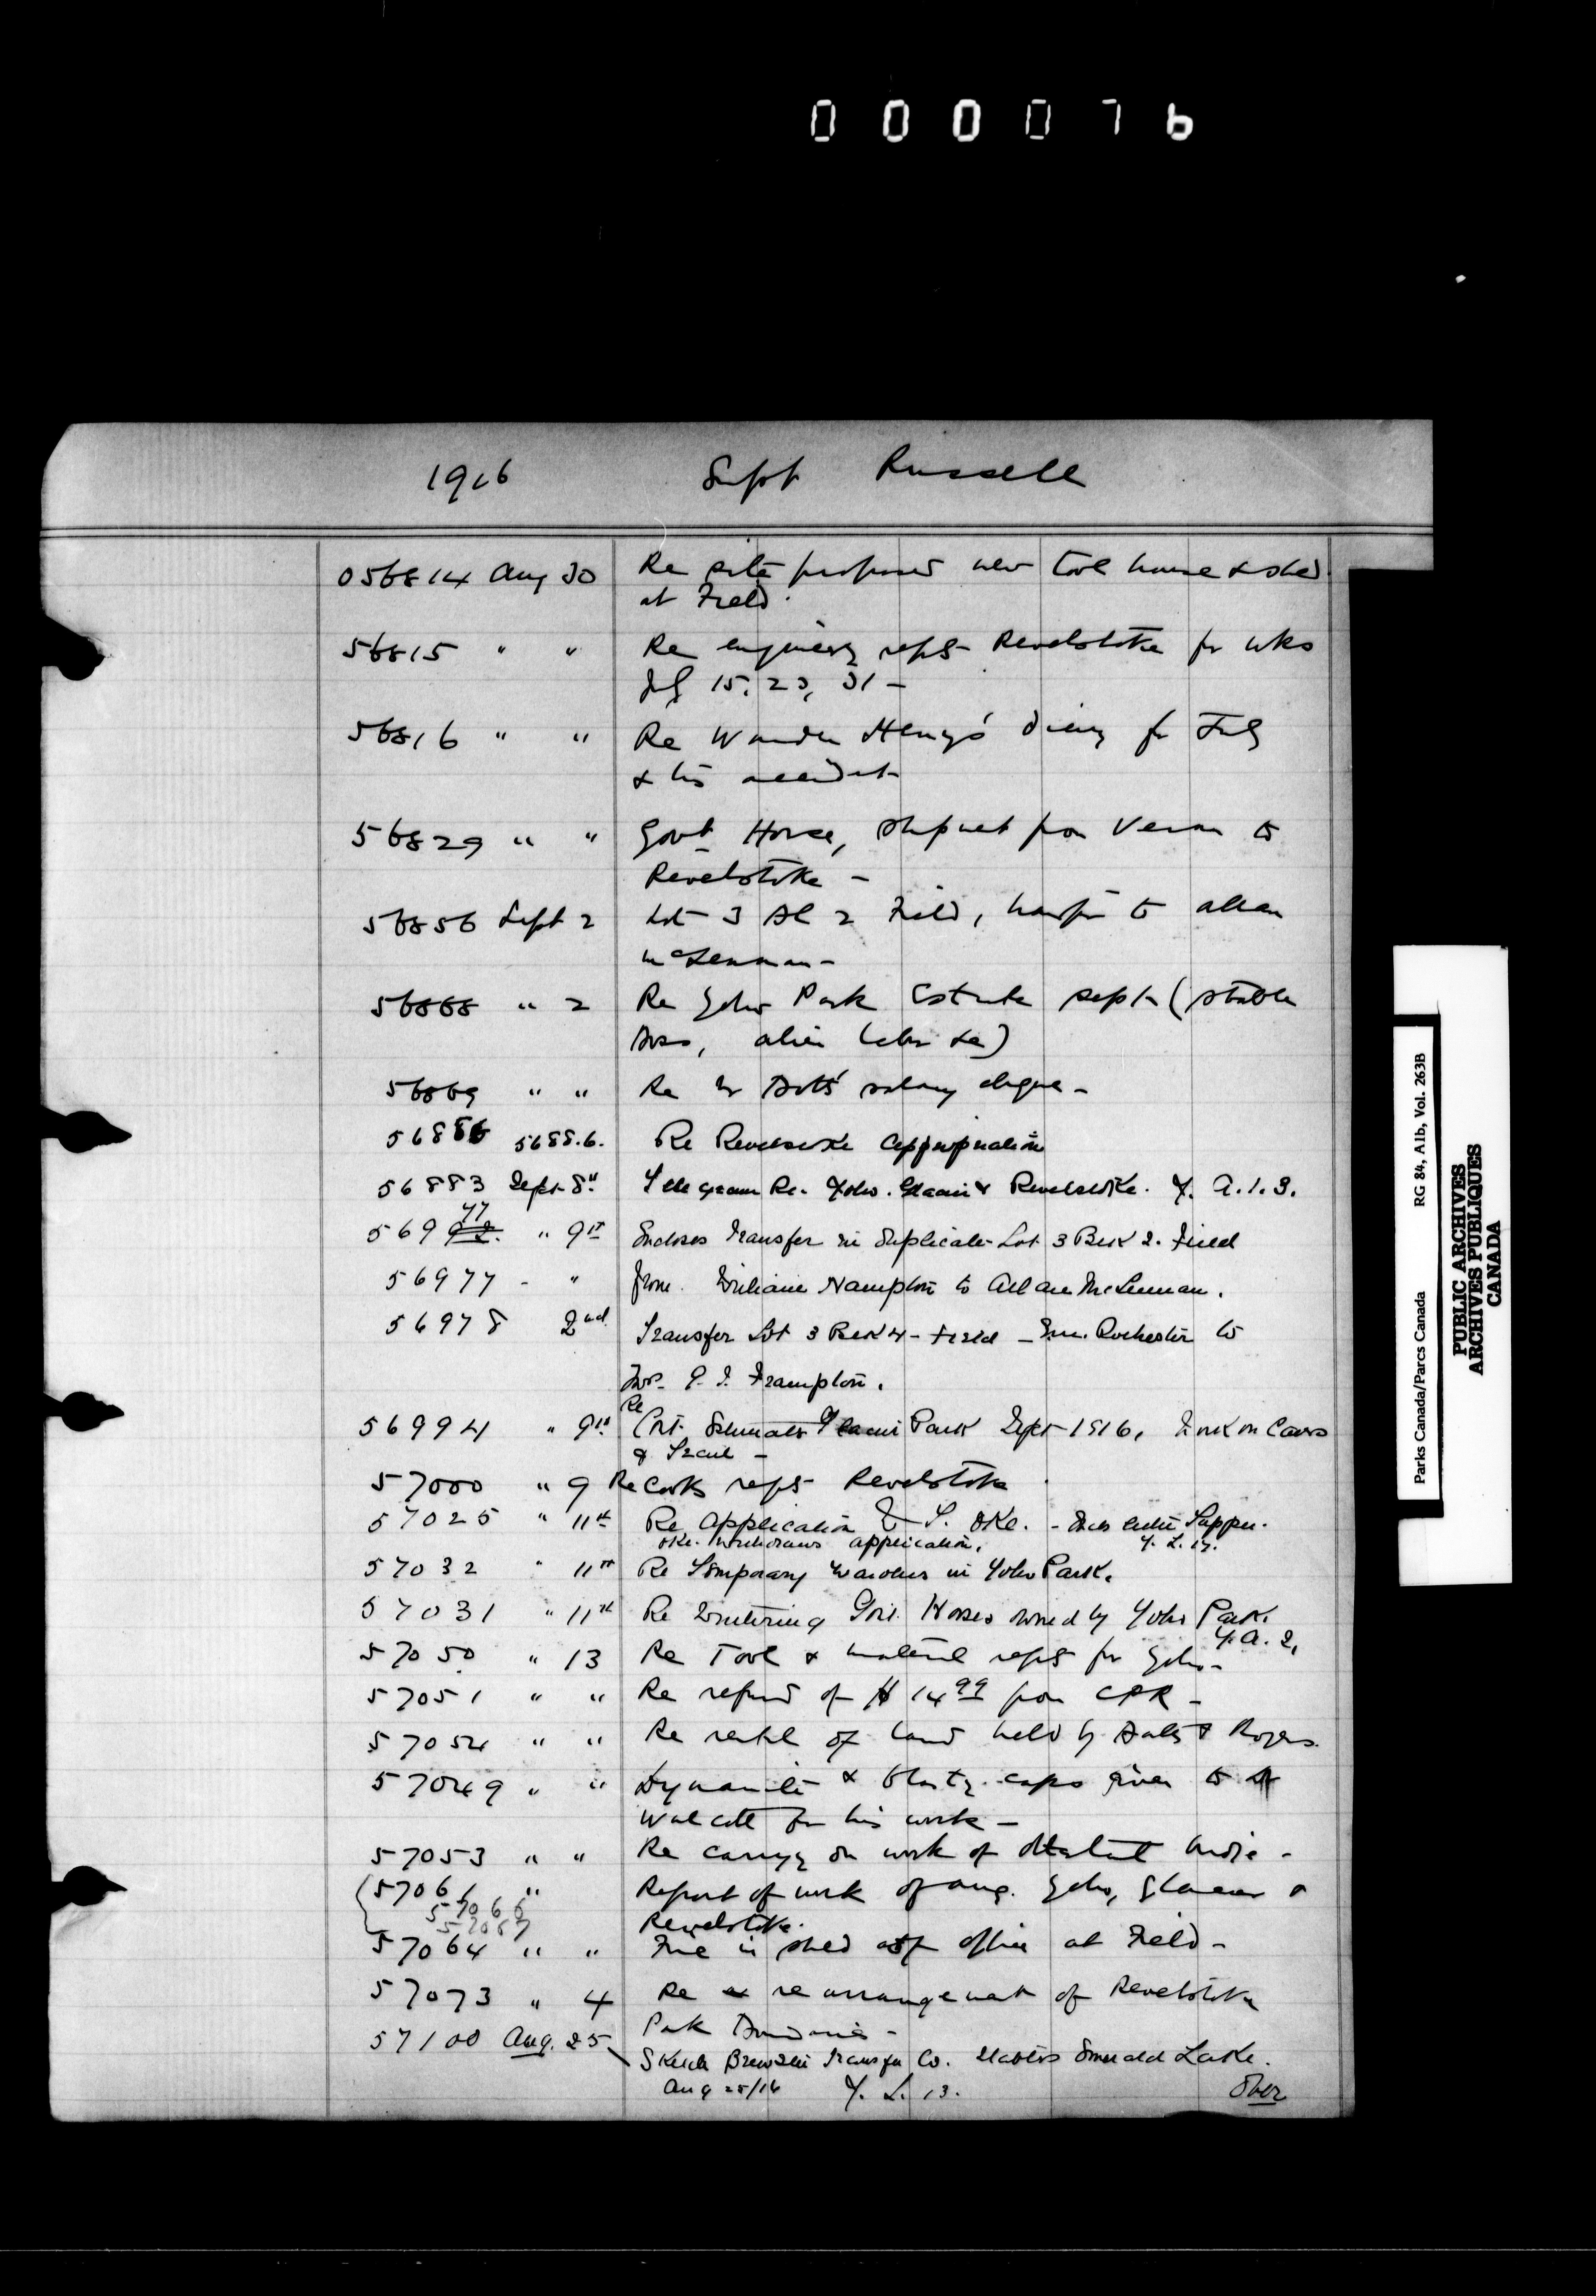 000076
1916 Supt Russell
056814 Aug 30 Re site proposed new tool house & shed
at Field.
56815 " " Re engineers repts Revelstoke for wks
July 15, 23, 31 -
56816 " " Re Warden Henry's diary for July
& his accident
56829 " " Govt Horse, shipment from Vernon to
Revelstoke -
56856 Sept 2 Lot 3 Bl 2 Field, transfer to Allan
McLennan -
56868 " 2 Re Yoho Park Estimate Sept (stable
alien labor &c)
56869 " " Re salary cheque -
56886 5688.6. Re Revelstoke Appropriation
56883 Sept 8th Telegram Re. Yoho. Glacier & Revelstoke. Y. A.1.3.
56992. 77 " 9th Encloses Transfer in duplicate Lot 3 Block 2. Field
56977 - " from William Hampton to Allan McLennan.
56978 2nd Transfer Lot 3 Block 4 - Field - Rochester to
Frampton.
Re
56994 " 9th Cost Estimates Glacier Park Sept 1916, Work on Caves
& Trail -
57000 " 9 Re Costs repts Revelstoke
57025 " 11th Re Application T. Oke. - Encls letter
Oke. withdraws application. Y. L. 17.
57032 " 11th Re Temporary Wardens in Yoho Park.
57031 " 11th Re Wintering Govt. Horses owned by Yoho Park.
Y. A. 2,
57050 " 13 Re Tool & material repts for Yoho -
57051 " " Re refund of $14.99 from CPR -
57054 " " Re rental of land held by & Rogers.
57049 " " Dynamite & blasting caps given to
Walcott for his work -
57053 " " Re carrying on work of -
57061 " Report of work of Aug. Yoho, Glacier &
57066
57067 Revelstoke.
57064 " " Fire in shed at office at Field -
57073 " 4 Re rearrangement of Revelstoke
Park Boundaries -
57100 Aug. 25 Sketch Brewster Transfer Co. Stables Emerald Lake.
Aug 25/16 Y. L. 13. Over
Parks Canada/Parcs Canada RG 84, A1b, Vol. 263B
PUBLIC ARCHIVES
ARCHIVES PUBLIQUES
CANADA